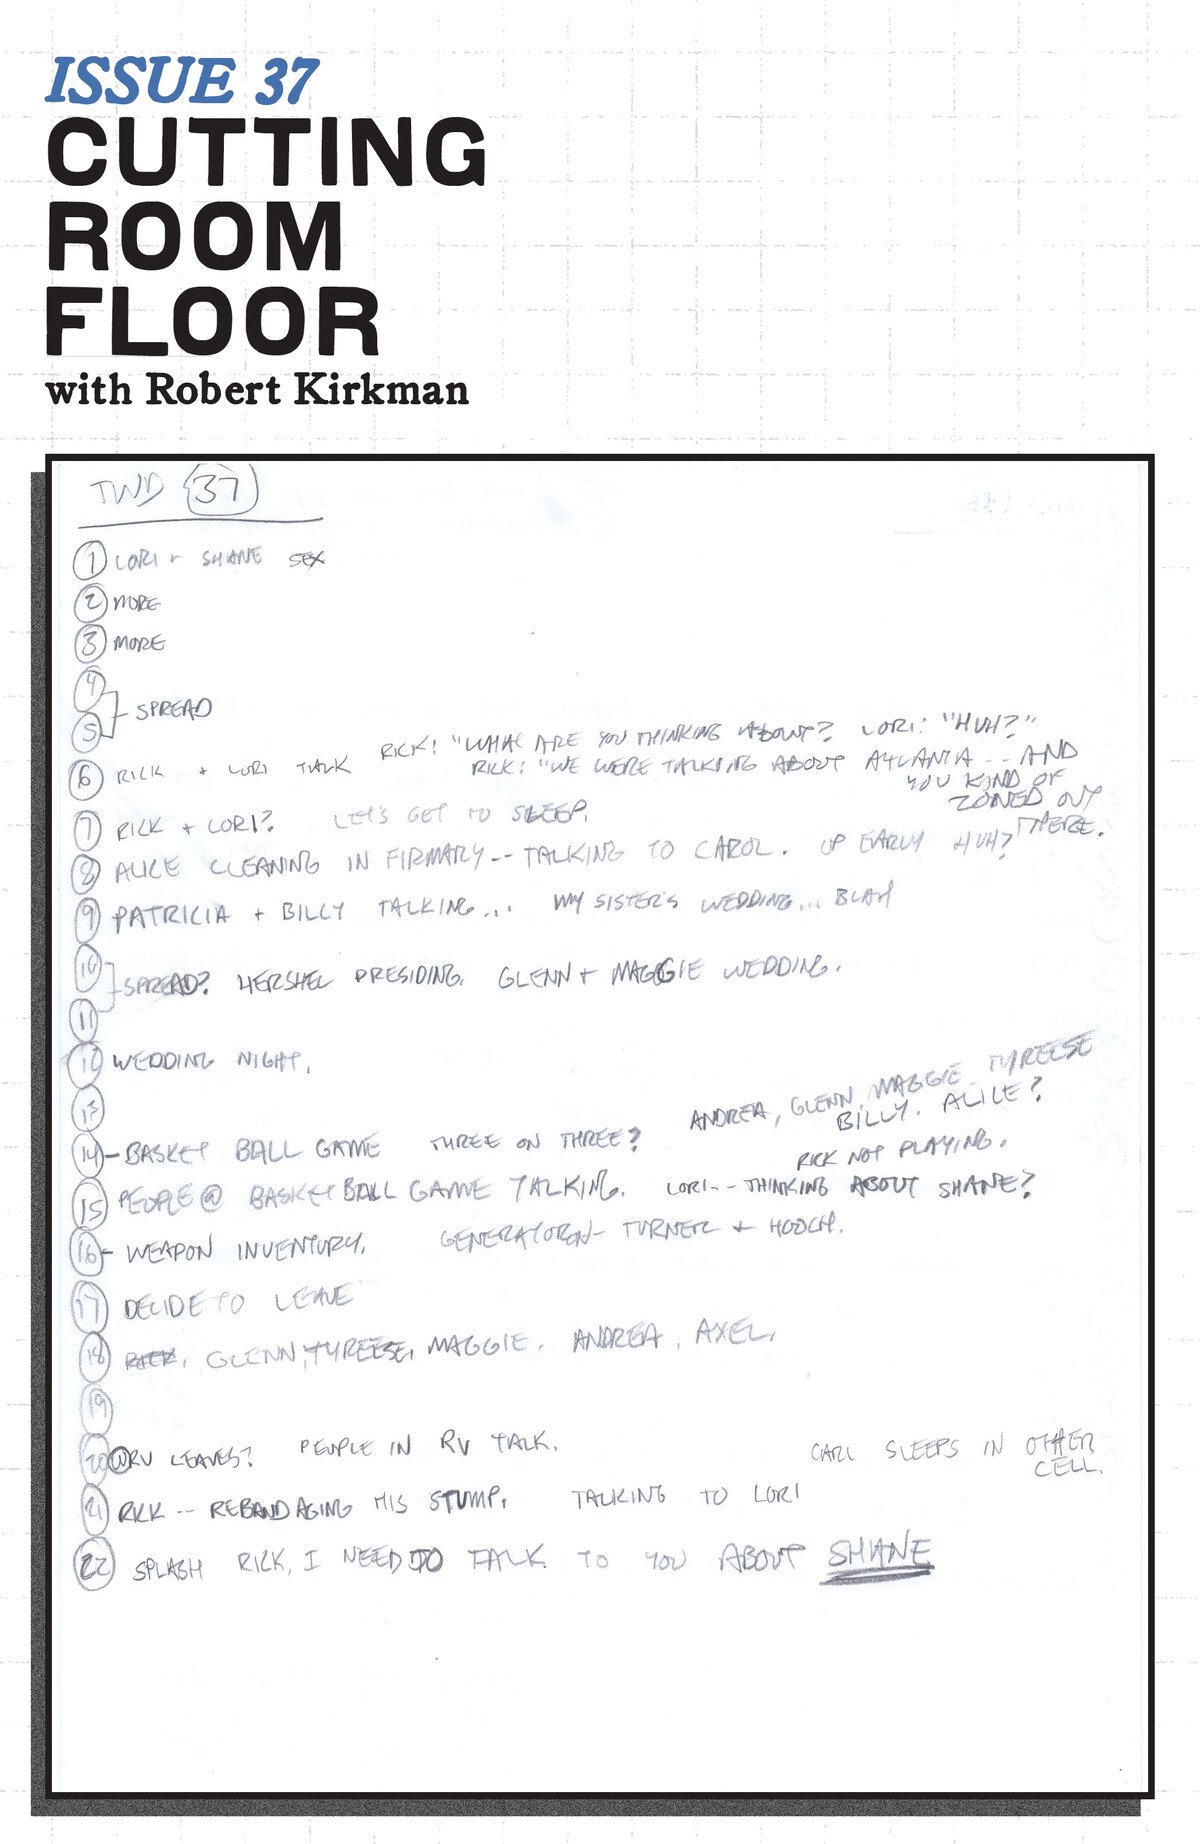 ISSUE 37
CUTTING
ROOM
FLOOR
with Robert Kirkman
TWD 37
1 LORI + SHANE SEX
2 MORE
3 MORE
4
5 SPREAD
6 RICK + LORI TALK RICK: "WHAT ARE YOU THINKING ABOUT? LORI: "HUH?"
RICK: "WE WERE TALKING ABOUT ATLANTA -- AND
YOU KIND OF
ZONED OUT
THERE.
7 RICK + LORI? LET'S GET TO SLEEP.
8 ALICE CLEANING IN FIRMARY -- TALKING TO CAROL. UP EARLY HUH?
9 PATRICIA + BILLY TALKING... MY SISTER'S WEDDING... BLAH
10
SPREAD? HERSHEL PRESIDING. GLENN + MAGGIE WEDDING.
11
12 WEDDING NIGHT.
13
ANDREA, GLENN, MAGGIE TYREESE
BILLY. ALICE?
14 - BASKET BALL GAME THREE ON THREE?
RICK NOT PLAYING.
15 PEOPLE @ BASKETBALL GAME TALKING. LORI -- THINKING ABOUT SHANE?
16 - WEAPON INVENTORY. TURNER + HOOCH.
17 DECIDE TO LEAVE
18 RICK, GLENN, TYREESE, MAGGIE. ANDREA, AXEL.
19
20 RV LEAVES? PEOPLE IN RV TALK.
CARL SLEEPS IN OTHER
CELL.
21 RICK -- REBANDAGING HIS STUMP. TALKING TO LORI
22 SPLASH RICK, I NEED TO TALK TO YOU ABOUT SHANE